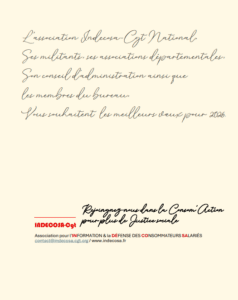 L'association Indecosa-Cgt National,
Ses militants, ses associations départementales
Son conseil d'administration ainsi que
les membres du bureau.
Vous souhaitent les meilleurs vœux pour 2026
Rejoignez nous dans la Consom'Action
pour plus de Justice sociale
INDECOSA-Cgt
Association pour l'INFORMATION & la DÉFENSE DES CONSOMMATEURS SALARIÉS
contact@indecosa.cgt.org / www.indecosa.fr